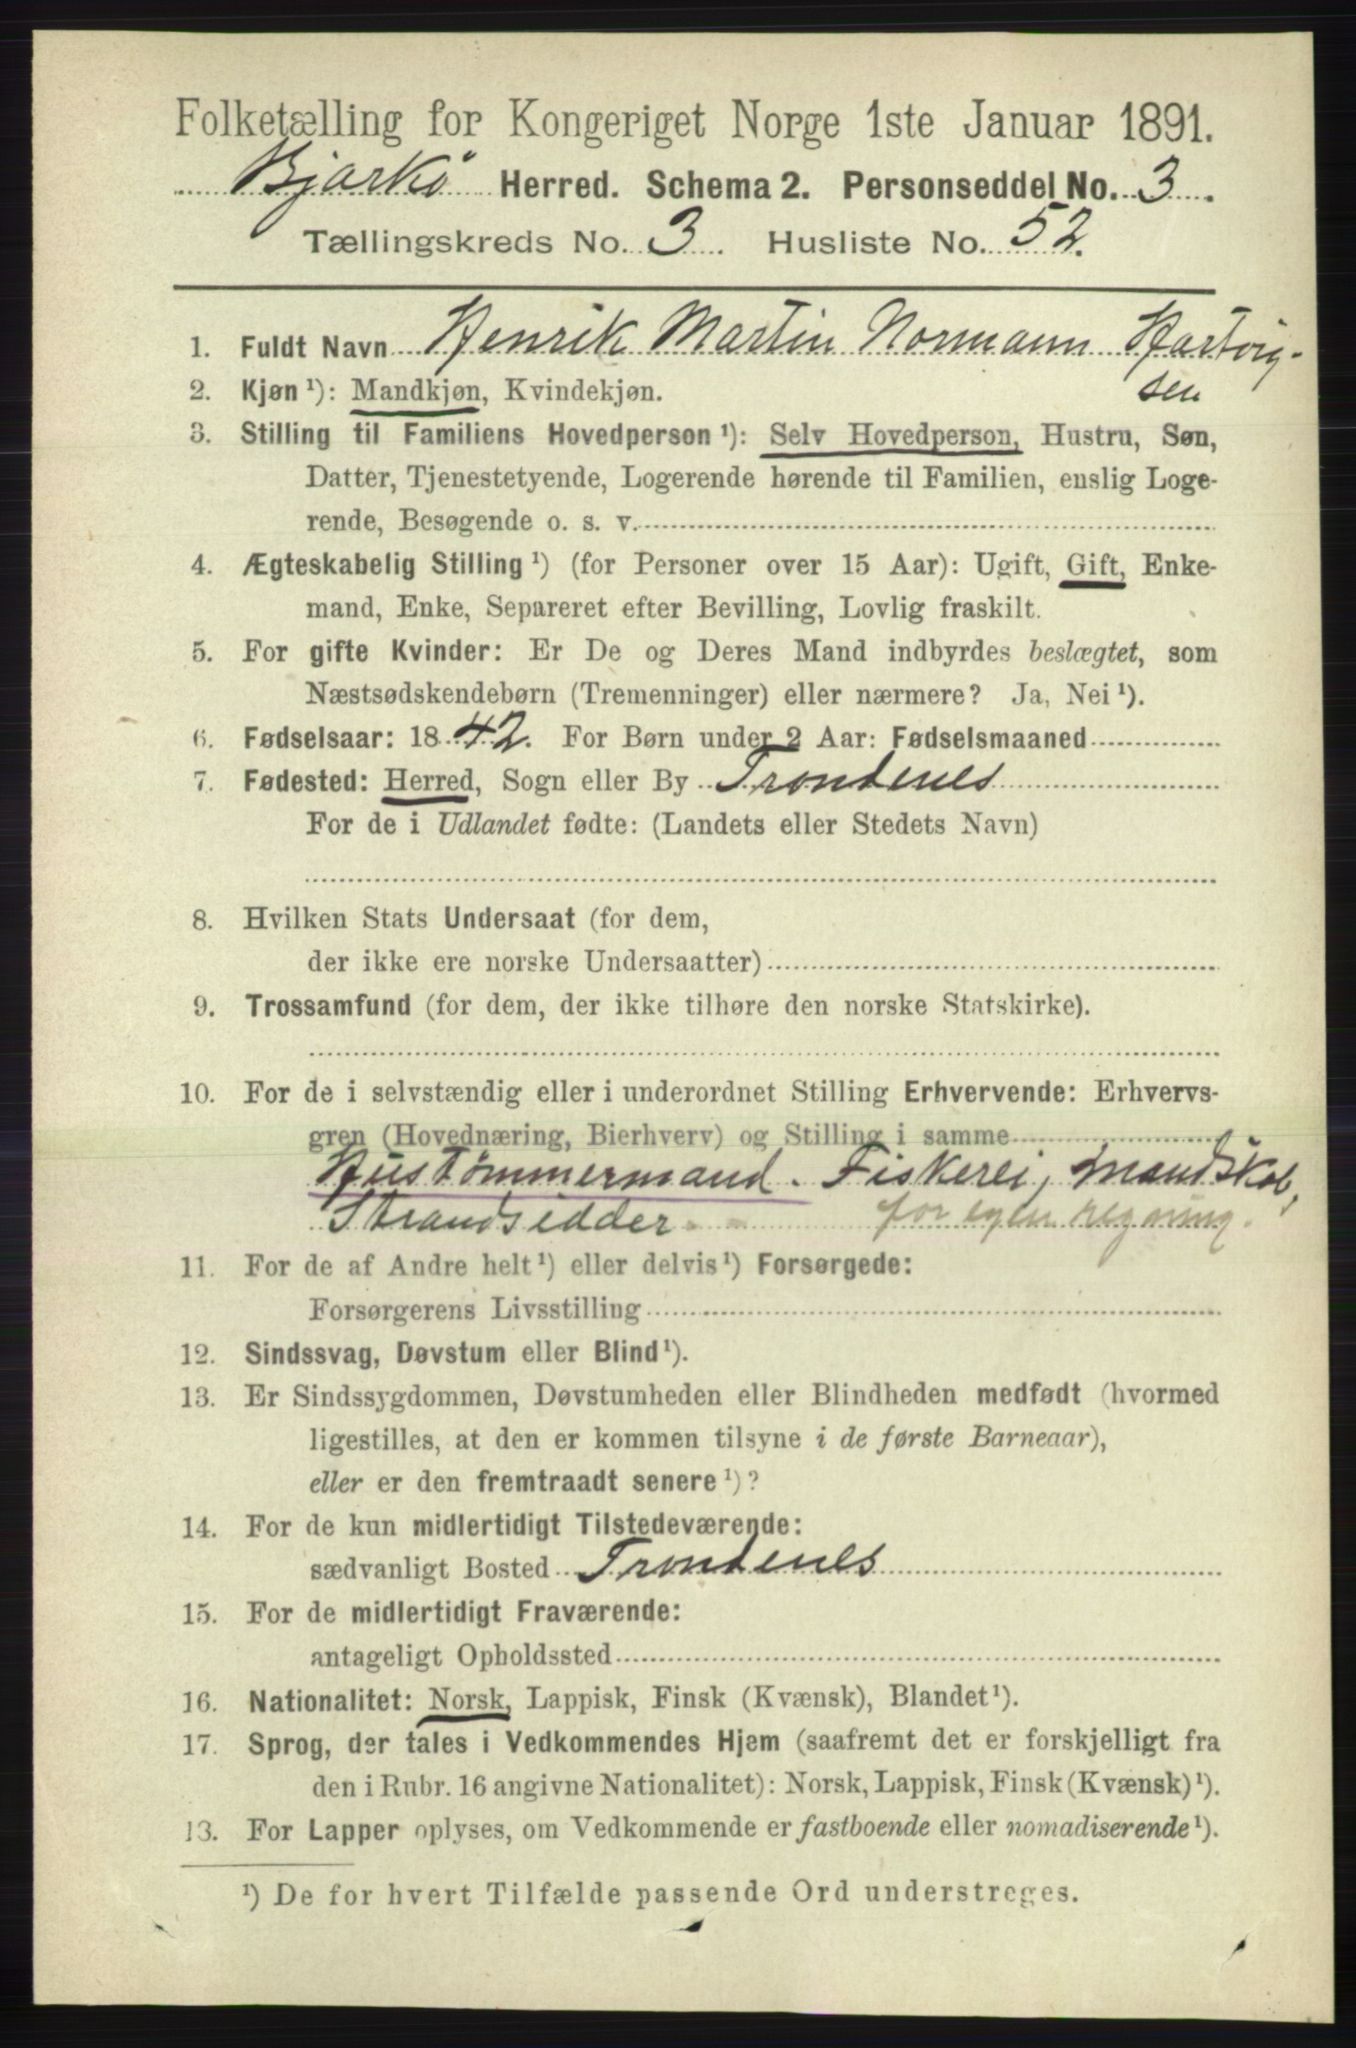 Folketælling for Kongeriget Norge 1ste Januar 1891.
Bjarkö Herred. Schema 2. Personseddel No. 3.
Tællingskreds No. 3. Husliste No. 52.
1. Fuldt Navn Henrik Martin Normann Hartvig-
sen
2. Kjøn ¹): Mandkjøn, Kvindekjøn.
3. Stilling til Familiens Hovedperson ¹): Selv Hovedperson, Hustru, Søn,
Datter, Tjenestetyende, Logerende hørende til Familien, enslig Loge-
rende, Besøgende o. s. v.
4. Ægteskabelig Stilling ¹) (for Personer over 15 Aar): Ugift, Gift, Enke-
mand, Enke, Separeret efter Bevilling, Lovlig fraskilt.
5. For gifte Kvinder: Er De og Deres Mand indbyrdes beslægtet, som
Næstsødskendebørn (Tremenninger) eller nærmere? Ja, Nei ¹).
6. Fødselsaar: 1842. For Børn under 2 Aar: Fødselsmaaned
7. Fødested: Herred, Sogn eller By Trondenes
For de i Udlandet fødte: (Landets eller Stedets Navn)
8. Hvilken Stats Undersaat (for dem,
der ikke ere norske Undersaatter)
9. Trossamfund (for dem, der ikke tilhøre den norske Statskirke).
10. For de i selvstændig eller i underordnet Stilling Erhvervende: Erhvervs-
gren (Hovednæring, Bierhverv) og Stilling i samme
Hustømmermand. Fiskerei, Mandskab,
Strandsidder for egen regning.
11. For de af Andre helt ¹) eller delvis ¹) Forsørgede:
Forsørgerens Livsstilling
12. Sindssvag, Døvstum eller Blind ¹).
13. Er Sindssygdommen, Døvstumheden eller Blindheden medfødt (hvormed
ligestilles, at den er kommen tilsyne i de første Barneaar),
eller er den fremtraadt senere ¹)?
14. For de kun midlertidigt Tilstedeværende:
sædvanligt Bosted Trondenes
15. For de midlertidigt Fraværende:
antageligt Opholdssted
16. Nationalitet: Norsk, Lappisk, Finsk (Kvænsk), Blandet ¹).
17. Sprog, der tales i Vedkommendes Hjem (saafremt det er forskjelligt fra
den i Rubr. 16 angivne Nationalitet): Norsk, Lappisk, Finsk (Kvænsk) ¹).
13. For Lapper oplyses, om Vedkommende er fastboende eller nomadiserende ¹).
¹) De for hvert Tilfælde passende Ord understreges.